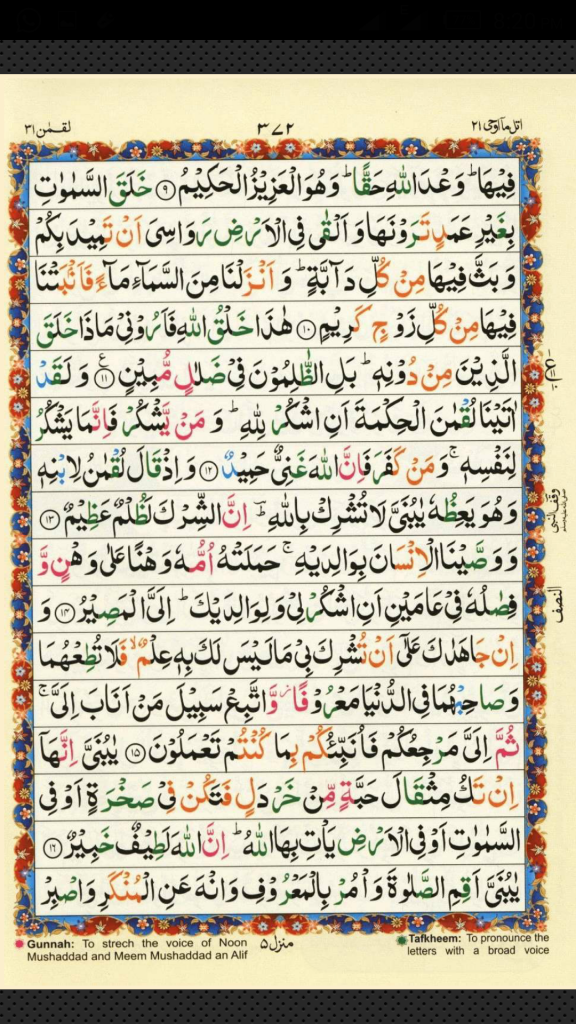 اتل ما اوحی ۲۱ ۳۷۲ لقمٰن ۳۱
فِيْهَا ؕ وَعْدَ اللّٰهِ حَقًّا ؕ وَهُوَ الْعَزِيْزُ الْحَكِيْمُ ﴿۹﴾ خَلَقَ السَّمٰوٰتِ
بِغَيْرِ عَمَدٍ تَرَوْنَهَا وَ اَلْقٰى فِى الْاَرْضِ رَوَاسِىَ اَنْ تَمِيْدَ بِكُمْ
وَ بَثَّ فِيْهَا مِنْ كُلِّ دَآبَّةٍ ؕ وَ اَنْزَلْنَا مِنَ السَّمَآءِ مَآءً فَاَنْۢبَتْنَا
فِيْهَا مِنْ كُلِّ زَوْجٍ كَرِيْمٍ ﴿۱۰﴾ هٰذَا خَلْقُ اللّٰهِ فَاَرُوْنِىْ مَاذَا خَلَقَ
الَّذِيْنَ مِنْ دُوْنِهٖ ؕ بَلِ الظّٰلِمُوْنَ فِىْ ضَلٰلٍ مُّبِيْنٍ ﴿۱۱﴾ ع وَ لَقَدْ
اٰتَيْنَا لُقْمٰنَ الْحِكْمَةَ اَنِ اشْكُرْ لِلّٰهِ ؕ وَ مَنْ يَّشْكُرْ فَاِنَّمَا يَشْكُرُ
لِنَفْسِهٖ ۚ وَ مَنْ كَفَرَ فَاِنَّ اللّٰهَ غَنِىٌّ حَمِيْدٌ ﴿۱۲﴾ وَ اِذْ قَالَ لُقْمٰنُ لِابْنِهٖ
وَ هُوَ يَعِظُهٗ يٰبُنَىَّ لَا تُشْرِكْ بِاللّٰهِ ؕ اِنَّ الشِّرْكَ لَظُلْمٌ عَظِيْمٌ ﴿۱۳﴾
وقف النبی
وَ وَصَّيْنَا الْاِنْسَانَ بِوَالِدَيْهِ ۚ حَمَلَتْهُ اُمُّهٗ وَهْنًا عَلٰى وَهْنٍ وَّ
فِصٰلُهٗ فِىْ عَامَيْنِ اَنِ اشْكُرْ لِىْ وَ لِوَالِدَيْكَ ؕ اِلَىَّ الْمَصِيْرُ ﴿۱۴﴾ وَ
النصف
اِنْ جَاهَدٰكَ عَلٰٓى اَنْ تُشْرِكَ بِىْ مَا لَيْسَ لَكَ بِهٖ عِلْمٌ ۙ فَلَا تُطِعْهُمَا
وَ صَاحِبْهُمَا فِى الدُّنْيَا مَعْرُوْفًا ؗ وَّ اتَّبِعْ سَبِيْلَ مَنْ اَنَابَ اِلَىَّ ۚ
ثُمَّ اِلَىَّ مَرْجِعُكُمْ فَاُنَبِّئُكُمْ بِمَا كُنْتُمْ تَعْمَلُوْنَ ﴿۱۵﴾ يٰبُنَىَّ اِنَّهَاۤ
اِنْ تَكُ مِثْقَالَ حَبَّةٍ مِّنْ خَرْدَلٍ فَتَكُنْ فِىْ صَخْرَةٍ اَوْ فِى
السَّمٰوٰتِ اَوْ فِى الْاَرْضِ يَاْتِ بِهَا اللّٰهُ ؕ اِنَّ اللّٰهَ لَطِيْفٌ خَبِيْرٌ ﴿۱۶﴾
يٰبُنَىَّ اَقِمِ الصَّلٰوةَ وَ اْمُرْ بِالْمَعْرُوْفِ وَ انْهَ عَنِ الْمُنْكَرِ وَ اصْبِرْ
منزل ۵
Gunnah: To strech the voice of Noon
Mushaddad and Meem Mushaddad an Alif
Tafkheem: To pronounce the
letters with a broad voice